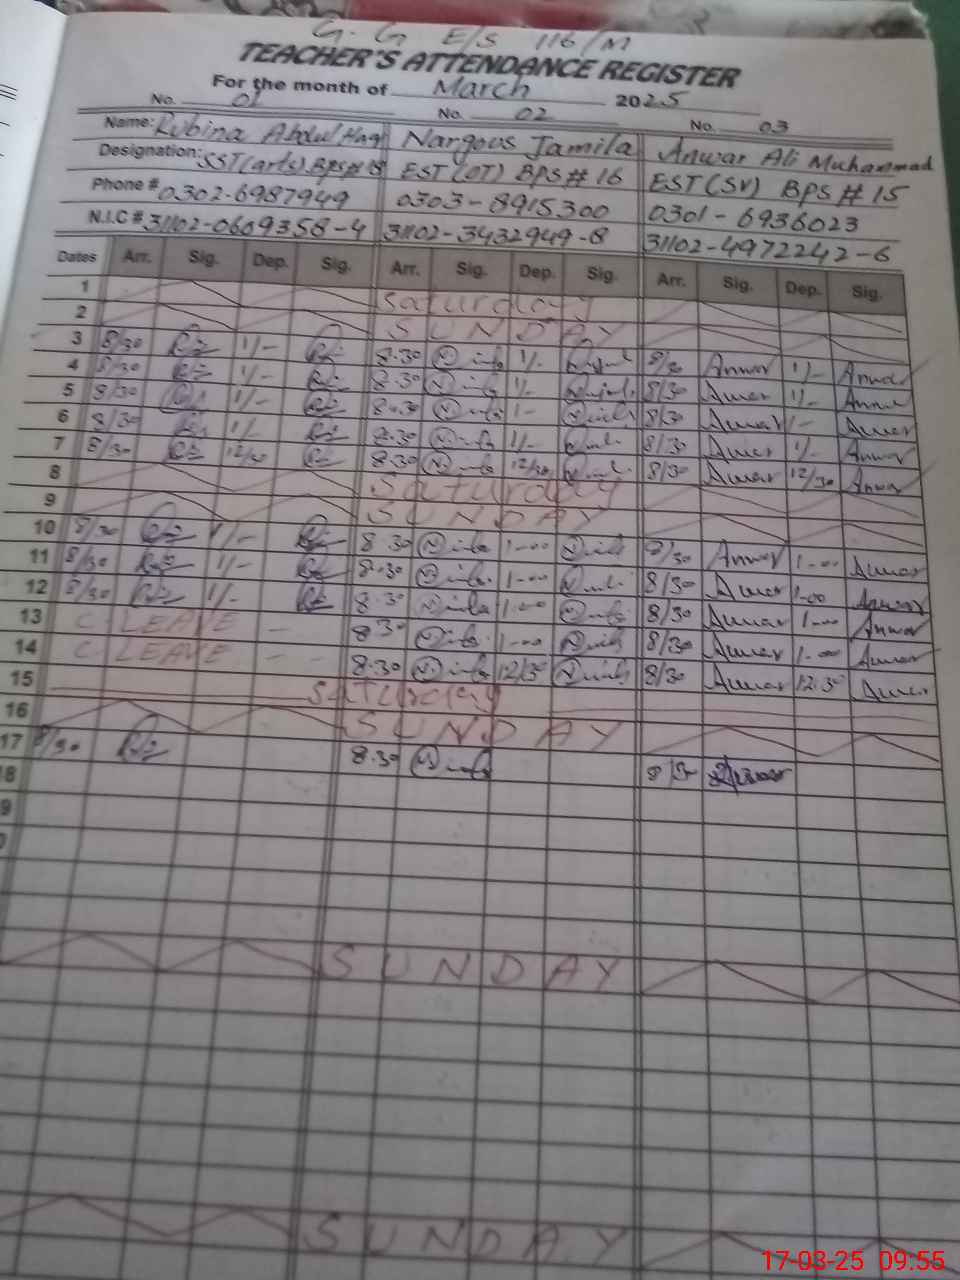 G. G E/S 116/M
TEACHER'S ATTENDANCE REGISTER
For the month of March 2025
No. 01 No. 02 No. 03
Name: Rubina Abdul Haq Nargous Jamila Anwar Ali Muhammad
Designation: SST(arts) BPS# EST (OT) BPS# 16 EST(SV) BPS # 15
Phone # 0302-6987949 0303-8915300 0301-6936023
N.I.C # 31102-0609358-4 31102-3432949-8 31102-4972242-6
Dates Arr. Sig. Dep. Sig. Arr. Sig. Dep. Sig. Arr. Sig. Dep. Sig.
1 Saturday
2 SUNDAY
3 8/30 1/- 8.30 1/- 8/30 Anwar 1/- Anwar
4 8/30 1/- 8.30 1/- 8/30 Anwar 1/- Anwar
5 8/30 1/- 8.30 1/- 8/30 Anwar 1/- Anwar
6 8/30 1/- 8.30 1/- 8/30 Anwar 1/- Anwar
7 8/30 12/30 8.30 12/30 8/30 Anwar 12/30 Anwar
8 Saturday
9 SUNDAY
10 8/30 1/- 8.30 1-00 8/30 Anwar 1-00 Anwar
11 8/30 1/- 8.30 1-00 8/30 Anwar 1-00 Anwar
12 8/30 1/- 8.30 1-00 8/30 Anwar 1-00 Anwar
13 C LEAVE - 8.30 1-00 8/30 Anwar 1-00 Anwar
14 C LEAVE - - 8.30 12/30 8/30 Anwar 12.30 Anwar
15 Saturday
16 SUNDAY
17 8/30 8.30 8/30 Anwar
18
9
0
SUNDAY
SUNDAY
17-03-25 09:55